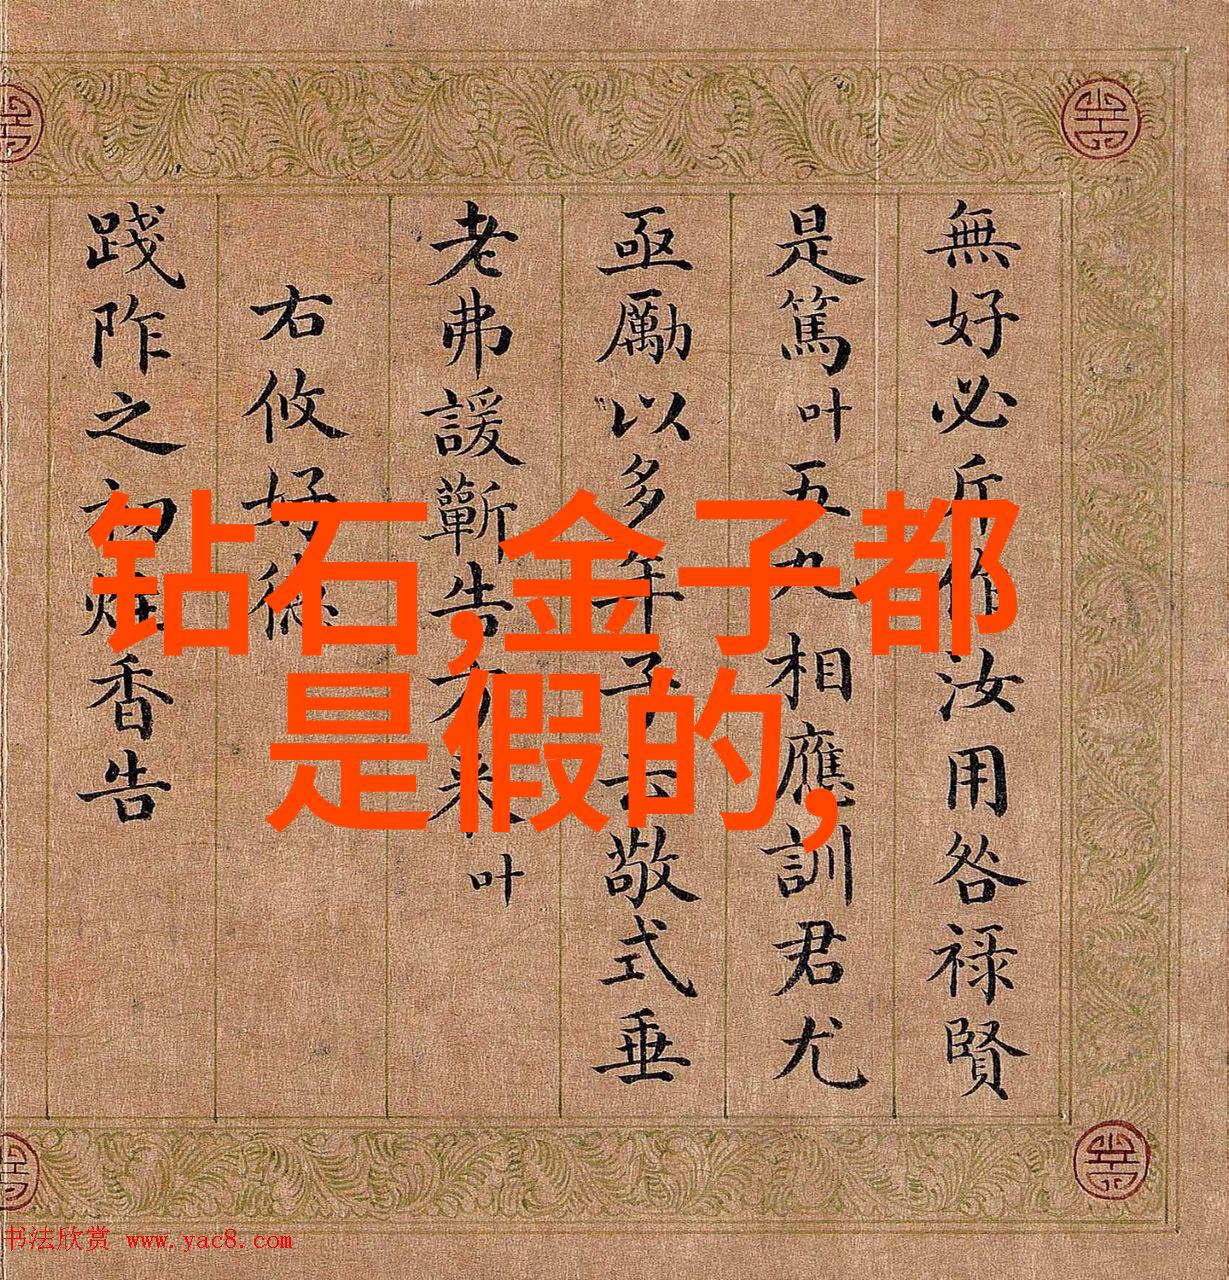 钻石,金子都
是假的,
無好必斤作汝用咎禄賢
是篤叶五九相應訓君尤
亟勵以多年予云敬式垂
老弗諼蘄告方来叶
右攸好德
践阼之初炷香告
书法欣赏 www.yac8.com